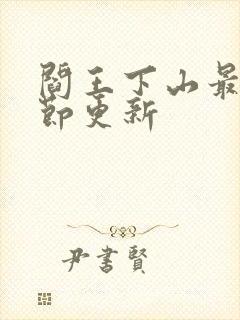 閻王下山最
節更新
尹書賢